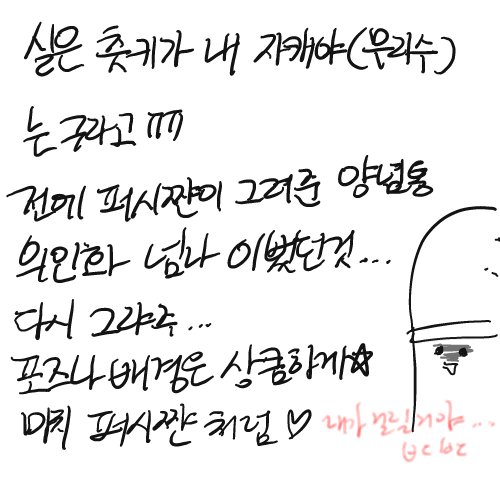 실은 츳키가 내 자캐야(우리수)
는 구라고 ㅠㅠ
전에 퍼시쨘이 그려준 양념통
의인화 넘나 이뻤던것...
다시 그랴주...
포즈나 배경은 상큼하게☆
마치 퍼시쨘 처럼♡
내가 날릴거야...
ㅂㄷㅂㄷ